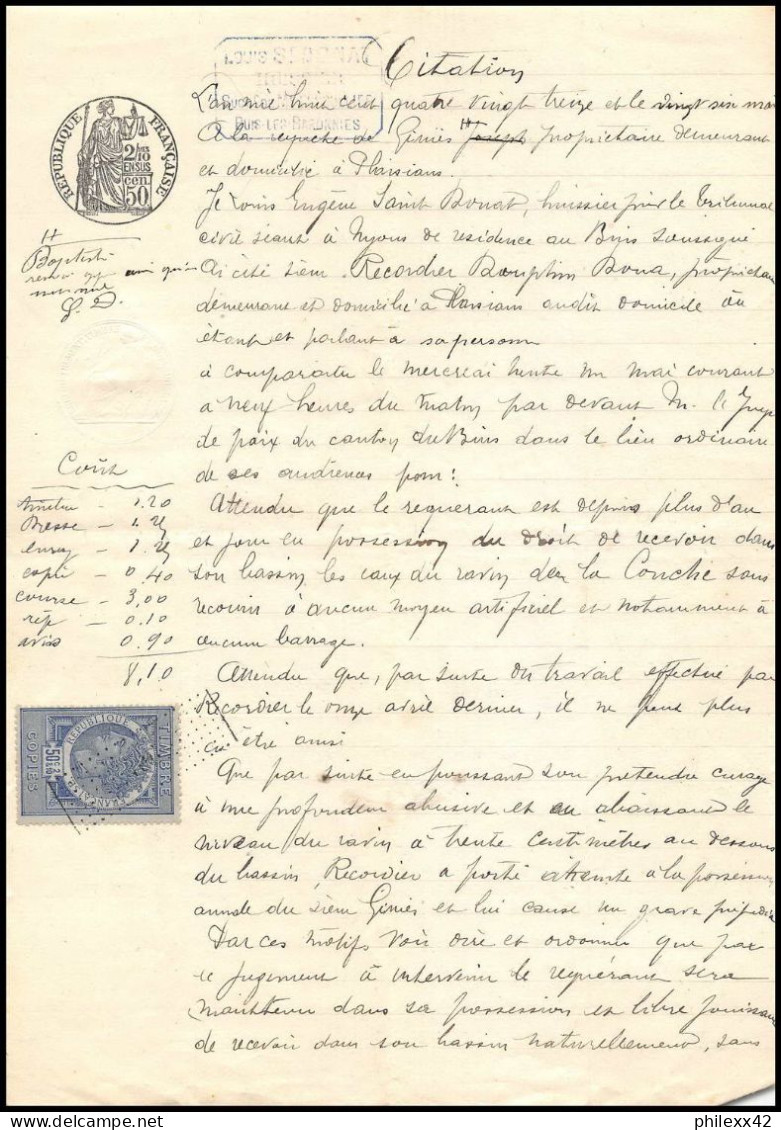 Citation
BUIS-LES-BARONNIES
RÉPUBLIQUE FRANÇAISE
2/10 EN SUS
50 cen.
L'an mil huit cent quatre vingt treize et le vingt six mai
A la requête de Giniès Joseph propriétaire demeurant
et domicilié à Plaisians.
Je Louis Eugène Saint Donat, huissier près le Tribunal
civil séant à Nyons de résidence au Buis soussigné
Ai cité sieur Recordier propriétaire
demeurant et domicilié à Plaisians audit domicile où
étant et parlant à sa personne
à comparaitre le mercredi trente un mai courant
à neuf heures du matin par devant M. le Juge
de paix du canton du Buis dans le lieu ordinaire
de ses audiences pour :
Attendu que le requérant est depuis plus d'an
et jour en possession du droit de recevoir dans
son bassin les eaux du ravin de la Conche sans
recourir à aucun moyen artificiel et notamment à
aucun barrage.
Attendu que, par suite du travail effectué par
Recordier le onze avril dernier, il ne peut plus
en être ainsi
Que par suite en poussant son prétendu curage
à une profondeur abusive et en abaissant le
niveau du ravin à trente centimètres au dessous
du bassin, Recordier a porté atteinte à la possession
annale du sieur Giniès et lui cause un grave préjudice
Par ces motifs Voir dire et ordonner que par
le jugement à intervenir le requérant sera
maintenu dans sa possession et libre jouissance
de recevoir dans son bassin naturellement, sans
Baptistin
S. D.
Coût
1.20
1.25
enreg – 1.25
copie – 0.40
course – 3,00
rép – 0.10
avis – 0.90
8,10
TIMBRE
RÉPUBLIQUE FRANÇAISE
COPIES
philexx42